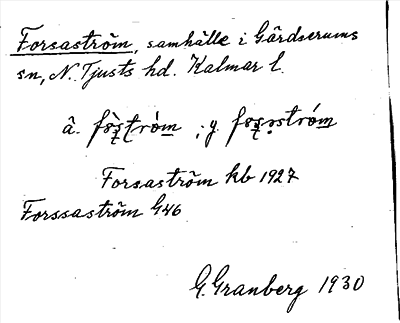 Forsaström, samhälle i Gärdserums
sn, N. Tjusts hd. Kalmar l.
å. ; y.
Forsaström kb 1927
Forssaström G46
G. Granberg 1930